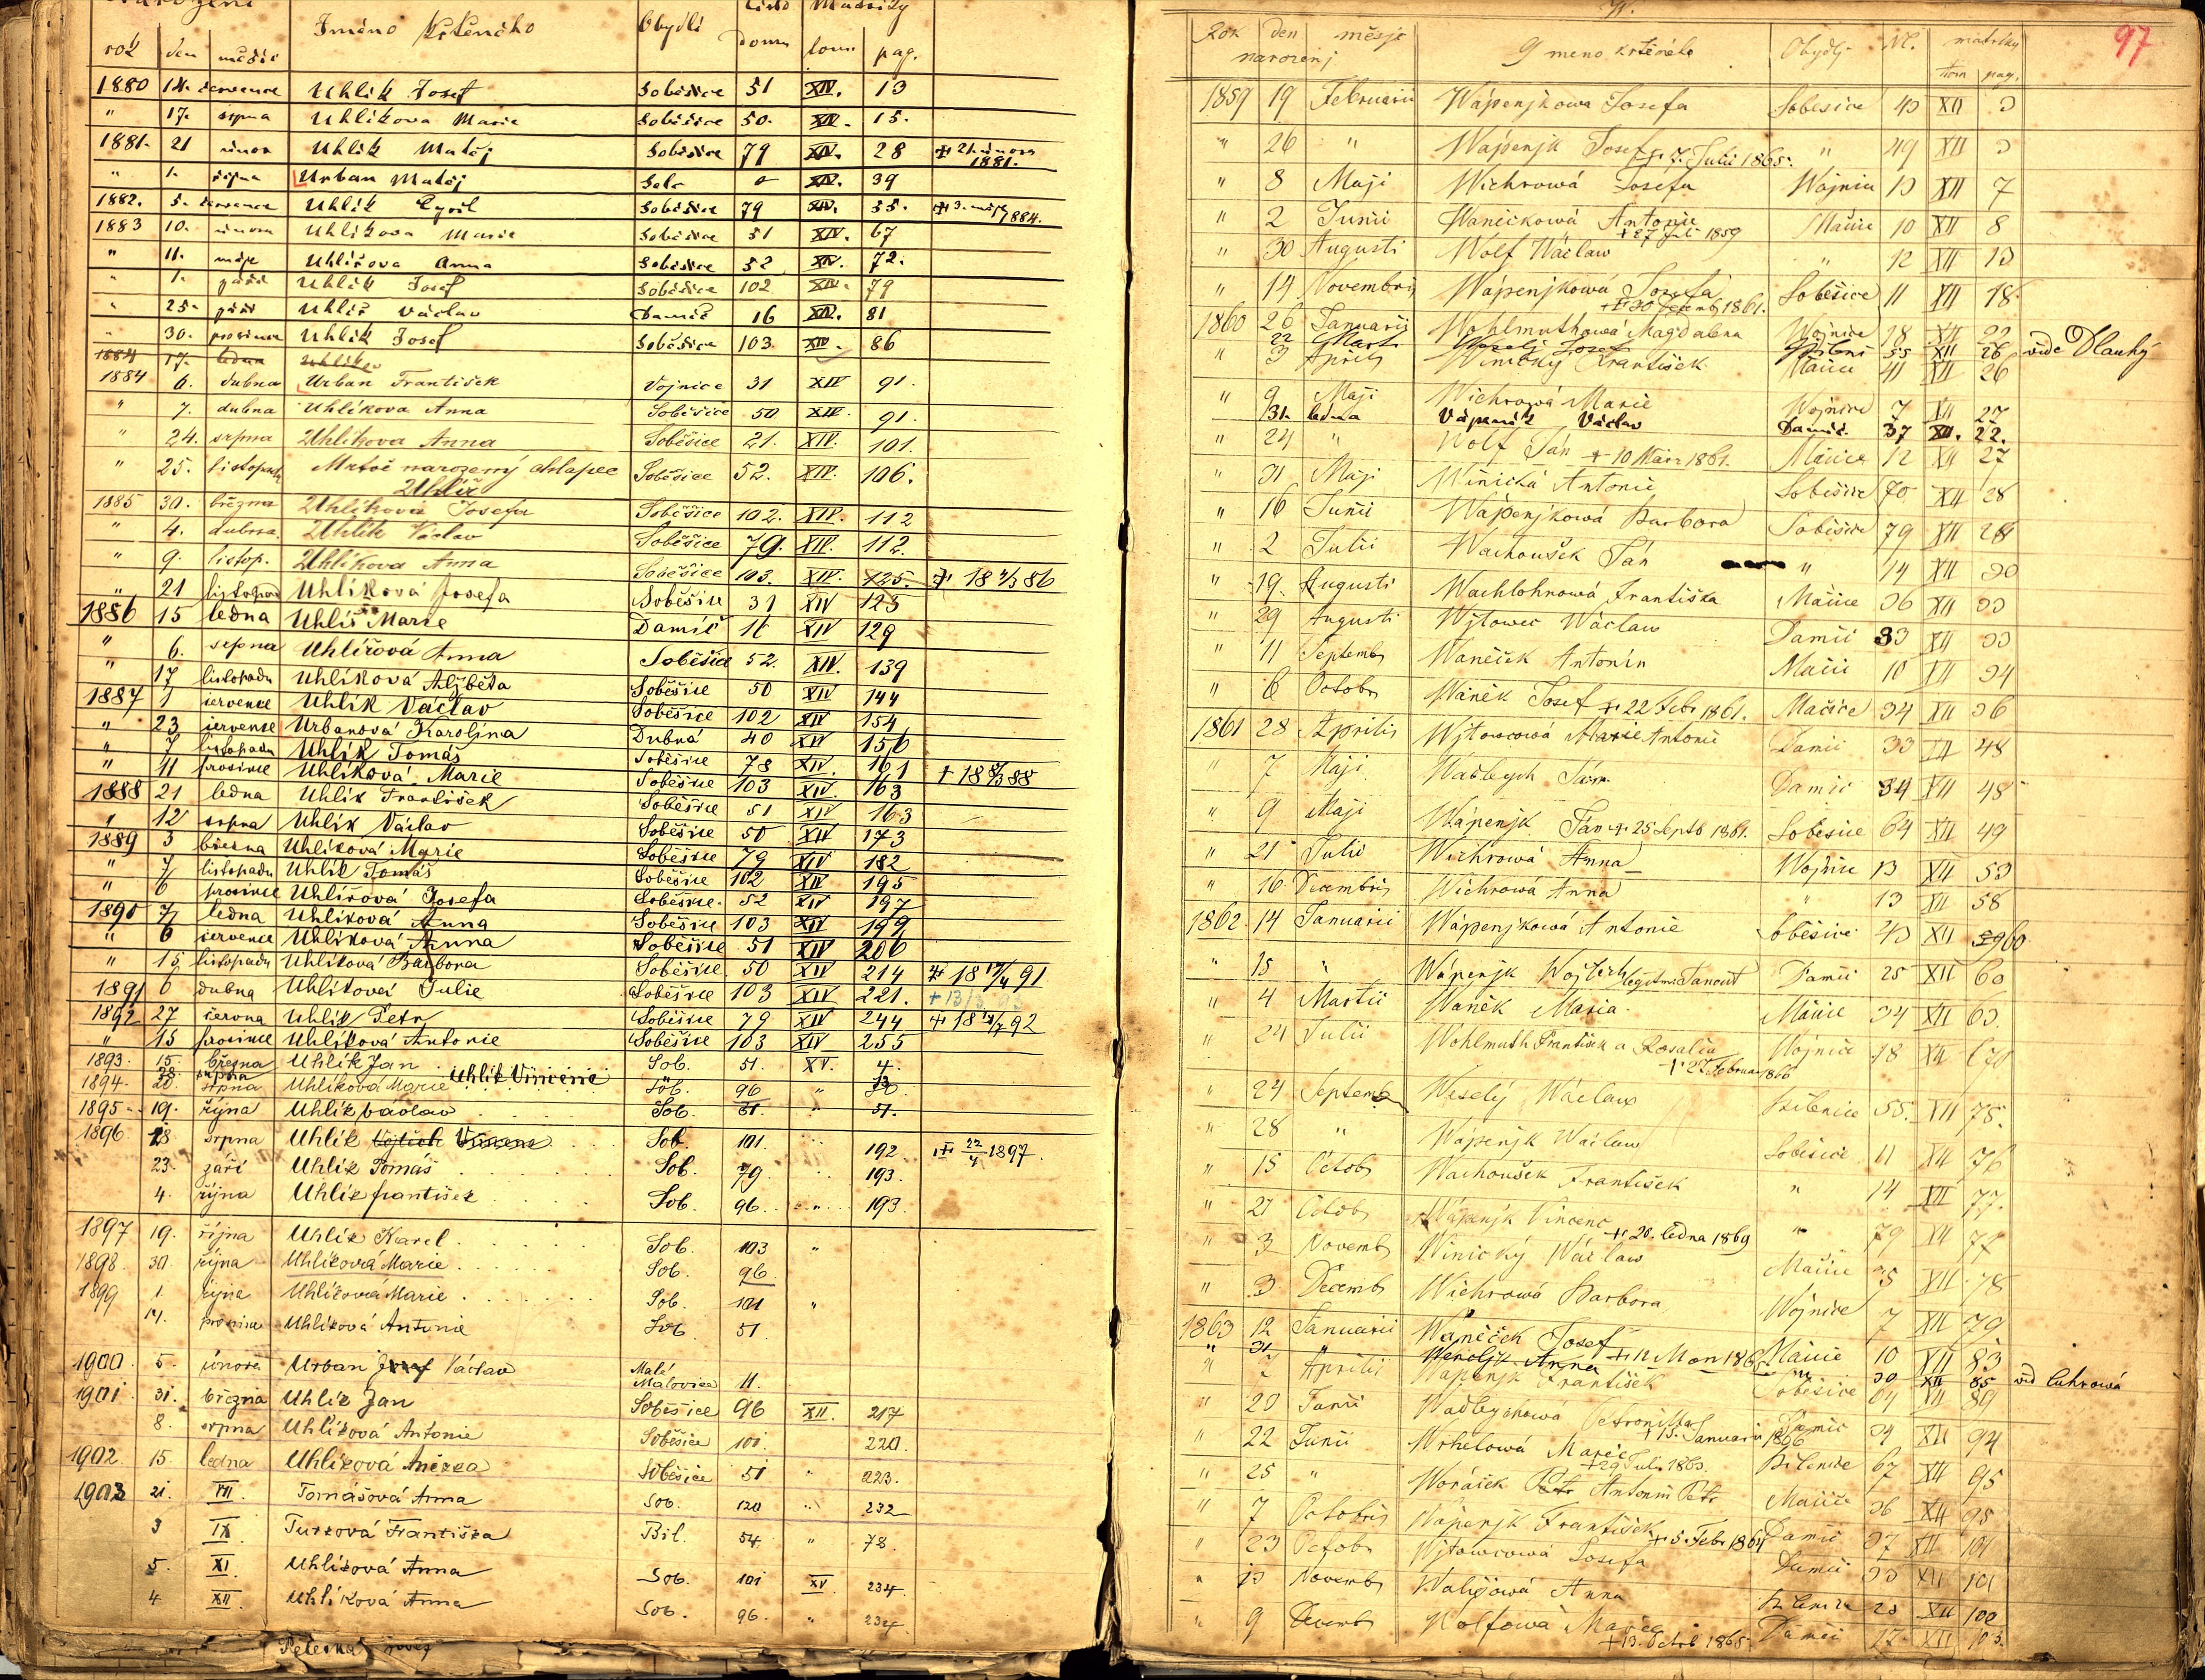 rok den měsíc Jméno Křtěncho Obydlí číslo domu Matriky tom. pag.
1880 14. července Uhlík Josef Soběšice 51 XIV. 13
" 17. srpna Uhlíkova Marie Soběšice 50. XIV. 15.
1881. 21 února Uhlík Matěj Soběšice 79 XIV. 28 + 21. února 1881.
" 1. října Urban Matěj XIV. 39
1882. 5. července Uhlík Cyril Soběšice 79 XIV. 55. + 3. máje 1884.
1883 10. února Uhlíkova Marie Soběšice 51 XIV. 67
" 11. máje Uhlířova Anna Soběšice 52 XIV. 72.
" 1. září Uhlík Josef Soběšice 102 XIV. 79
" 25. září Uhlíř Václav Damič 16 XIV. 81
" 30. prosince Uhlík Josef Soběšice 103 XIV. 86
1884 17. ledna Uhlík
1884 6. dubna Urban František Vojnice 31 XIV 91.
" 7. dubna Uhlíkova Anna Soběšice 50 XIV. 91.
" 24. srpna Uhlíkova Anna Soběšice 21. XIV. 101.
" 25. listopadu Mrtvě narozený chlapec Soběšice 52. XIV. 106.
Uhlíř
1885 30. března Uhlíkova Josefa Soběšice 102. XIV. 112
" 4. dubna Uhlík Václav Soběšice 79. XIV. 112.
" 9. listop. Uhlíkova Anna Soběšice 103. XIV. 125. + 18 4/3 86
" 21 listopad Uhlíková Josefa Soběšice 31 XIV 125
1886 15 ledna Uhlíř Marie Damíč 16 XIV 129
" 6. srpna Uhlířová Anna Soběšice 52. XIV. 139
" 17 listopadu Uhlíková Alžběta Soběšice 50 XIV 144
1887 1 července Uhlík Václav Soběšice 102 XIV 154
" 23 července Urbanová Karolína Dubná 40 XIV 156
" 7 listopadu Uhlík Tomáš Soběšice 78 XIV. 161
" 11 prosince Uhlíková Marie Soběšice 103 XIV. 163 + 18 88
1888 21 ledna Uhlík František Soběšice 51 XIV 163
" 12 srpna Uhlík Václav Soběšice 50 XIV 173
1889 3 března Uhlíková Marie Soběšice 79 XIV 182
" 7 listopadu Uhlík Tomáš Soběšice 102 XIV 195
" 6 prosince Uhlířová Josefa Soběšice. 52 XIV 197
1890 7 ledna Uhlíková Anna Soběšice 103 XIV 199
" 6 července Uhlíková Anna Soběšice 51 XIV 206
" 15 listopadu Uhlíková Barbora Soběšice 50 XIV 214 + 18 17/4 91
1891 6 dubna Uhlíková Julie Soběšice 103 XIV 221. + 13/3
1892 27 června Uhlík Petr Soběšice 79 XIV 244 + 18 92
" 15 prosince Uhlíková Antonie Soběšice 103 XIV 255
1893. 15. března Uhlík Jan Sob. 51. XV. 4.
28 srpna Uhlík Vincenc
1894. 20. srpna Uhlíková Marie Sob. 96 "
1895 19. října Uhlík Václav Sob. 51. " 51.
1896 28 srpna Uhlík Vojtěch Vincenc Sob. 101. 192. + 22/4 1897.
23. září Uhlík Tomáš Sob. 79. 193.
4. října Uhlík František Sob. 96. " 193.
1897 19. října Uhlík Karel Sob. 103 "
1898. 30 října Uhlíková Marie Sob. 96
1899 1. října Uhlíková Marie Sob. 101 "
14. prosince Uhlíková Antonie Sob. 51.
1900. 5. února Urban Josef Václav Malé Malovice 11.
1901. 31. března Uhlík Jan Soběšice 96 XII. 217
8. srpna Uhlíková Antonie Soběšice 101. 220.
1902 15. ledna Uhlíková Anežka Soběšice 51 " 223.
1903 21. VII. Tomášová Anna Sob. 120 " 232
3 IX Turková Františka Bil. 54 " 78.
5. XI. Uhlíková Anna Sob. 101 XV. 234.
4 XII. Uhlíková Anna Sob. 96. " 234
W.
97
Rok den měsje Gmeno krtěněte Obydlj N. matriky
narozenj tom pag.
1859 19 Februarii Wápenjkowa Josefa Sobesice 43 XII 3
" 26 " Wápenjk Josef + 7. Julii 1865. " 49 XII 3
" 8 Maji Wichrowá Josefa Wojnice 13 XII 7
" 2 Junii Wanéčkowá Antonie Mačice 10 XII 8
+ 27 Juli 1859
" 30 Augusti Wolf Wáclaw " 12 XII 13
" 14 Novembris Wápenjkowá Josefa Soběšice 11 XII 18.
+ 30 Decemb 1861.
1860 26 Januarii Wohlmuthowá Magdalena Wojnice 18 XII 22
22 Marti Weselj Josef 55 XII 26 vide Dlauhý
" 3 Aprilis Winický František Mačice 41 XII 26
" 9 Maji Wichrowá Marie Wojnice 7 XII 27
31. ledna Vápeník Václav Damíč. 37 XII. 22.
" 24 " Wolf Ján + 10 März 1861. Mačice 12 XII 27
" 31 Maji Winická Antonie Soběšice 70 XII 28
" 16 Junii Wápenjkowá Barbora Soběšice 79 XII 28
" 2 Julii Wachoušek Ján " 14 XII 30
" 19. Augusti Wachlohnowá Františka Mačice 36 XII 33
" 29 Augusti Wjtowec Wáclaw Damič 33 XII 33
" 11 Septemb Waněček Antonín Mačice 10 XII 34
" 6 Octobr Waněk Josef + 22 Febr 1861. Mačice 34 XII 36
1861 28 Aprilis Wjtowcowá Marie Antonie Damič 33 XII 48
" 7 Maji Wadlegch Ján Damič 34 XII 48
" 9 Maji Wápenjk Ján + 25 Septb 1861. Soběsice 64 XII 49
" 21 Julii Wichrowá Anna Wojnice 13 XII 53
" 16 Decembris Wichrowá Anna " 13 XII 58
1862 14 Januarii Wápenjkowá Antonie Soběsice 43 XII 60
" 15 " Wápenjk Wojtech Damič 25 XII 60
" 4 Martii Waněk Maria Mačice 34 XII 63.
" 24 Julii Wohlmuth František a Rosalia Wojnice 18 XII
+ 22 Februar 1866
" 24 Septemb Weselý Wáclaw Bilenice 55. XII 75.
" 28 " Wápenjk Wáclaw Soběsice 11 XII 76
" 15 Octob Wachoušek František " 14 XII 77.
" 21 Octob Wápenjk Vincenc + 20. ledna 1869 " 79 XII 77
" 3 Novemb Winický Wáclaw Mačice 35 XII 78
" 3 Decemb Wichrowá Barbora Wojnice 7 XII 79
1863 12 Januarii Waněček Josef Mačice 10 XII 83
" 31 " Anna 30 XII 85 vid Cuhrowá
" 7 Aprilii Wápenjk František Soběsice 64 XII 89
" 20 Junii Wadlegchowá Petronilla Damič 34 XII 94
+ 15. Januarii 1866
" 22 Junii Wrhelowá Marie Bilenice 67 XII 95
+ 29 Juli 1863.
" 25 " Worášek Petr Antonín Petr Mačice 36 XII 95
" 7 Octobris Wápenjk František + 5. Febr 1864 Damič 37 XII 101
" 23 Octobr Wjtowcowá Josefa Damič 33 XII 101
" Novemb Walešowá Anna Bilenice XII 100
" 9 Decemb Wolfowá Marie Damič 27 XII 103.
+ 13. Octob 1865.